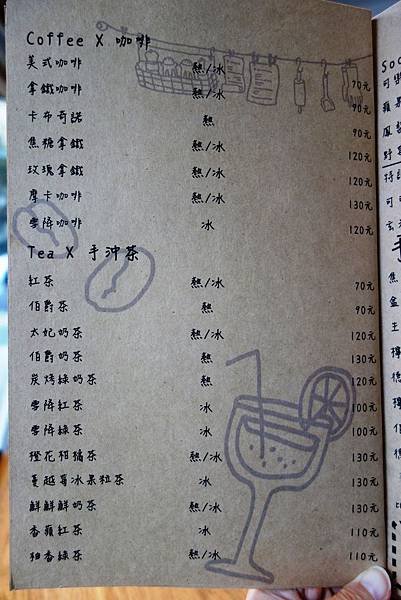 Coffee X 咖啡
美式咖啡 熱/冰 70元
拿鐵咖啡 熱/冰 90元
卡布奇諾 熱 90元
焦糖拿鐵 熱/冰 120元
玫瑰拿鐵 熱/冰 120元
摩卡咖啡 熱/冰 130元
雪降咖啡 冰 120元
Tea X 手沖茶
紅茶 熱/冰 70元
伯爵茶 熱 90元
太妃奶茶 熱/冰 120元
伯爵奶茶 熱 130元
炭烤綠奶茶 熱 120元
雪降紅茶 冰 100元
雪降綠茶 冰 100元
橙花柑橘茶 熱/冰 130元
蔓越莓冰果粒茶 冰 130元
鮮鮮鮮奶茶 熱/冰 130元
香蘋紅茶 冰 110元
柚香綠茶 熱/冰 110元